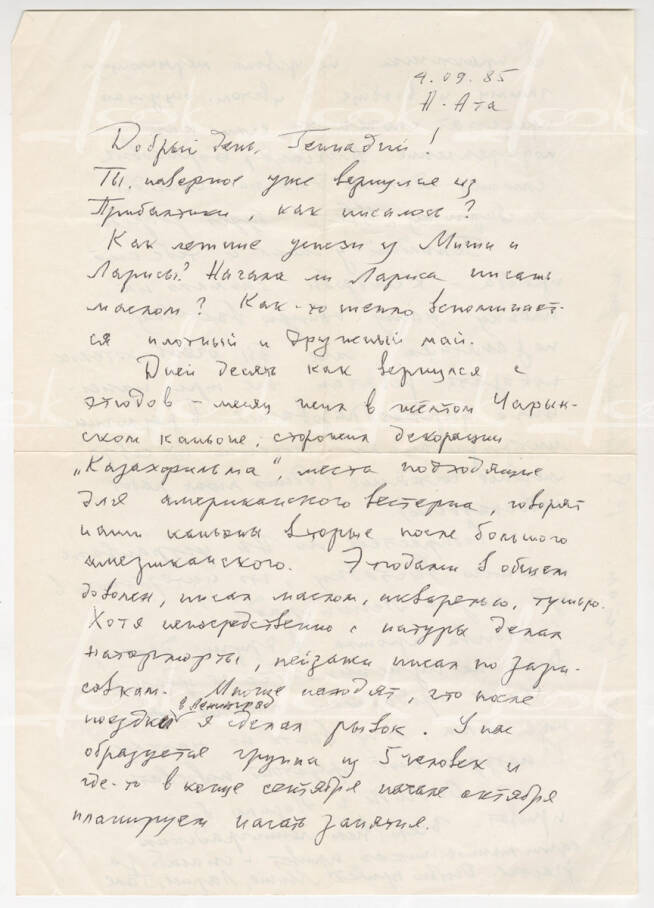 4.09.85
А-Ата
Добрый день, Геннадий!
Ты, наверное уже вернулся из
Прибалтики, как писалось?
Как летние успехи у Миши и
Ларисы? Начала ли Лариса писать
маслом? Как-то тепло вспоминает-
ся плотный и дружный май.
Дней десять как вернулся с
этюдов – месяц жил в жёлтом Чарын-
ском каньоне, сторожил декорации
„Казахфильма“, места подходящие
для американского вестерна, говорят
наши каньоны вторые после большого
американского. Этюдами в общем
доволен, писал маслом, акварелью, тушью.
Хотя непосредственно с натуры делал
натюрморты, пейзажи писал по зари-
совкам. Многие находят, что после
поездки в Ленинград я сделал рывок. У нас
образуется группа из 5 человек и
где-то в конце сентября начале октября
планируем начать занятия.